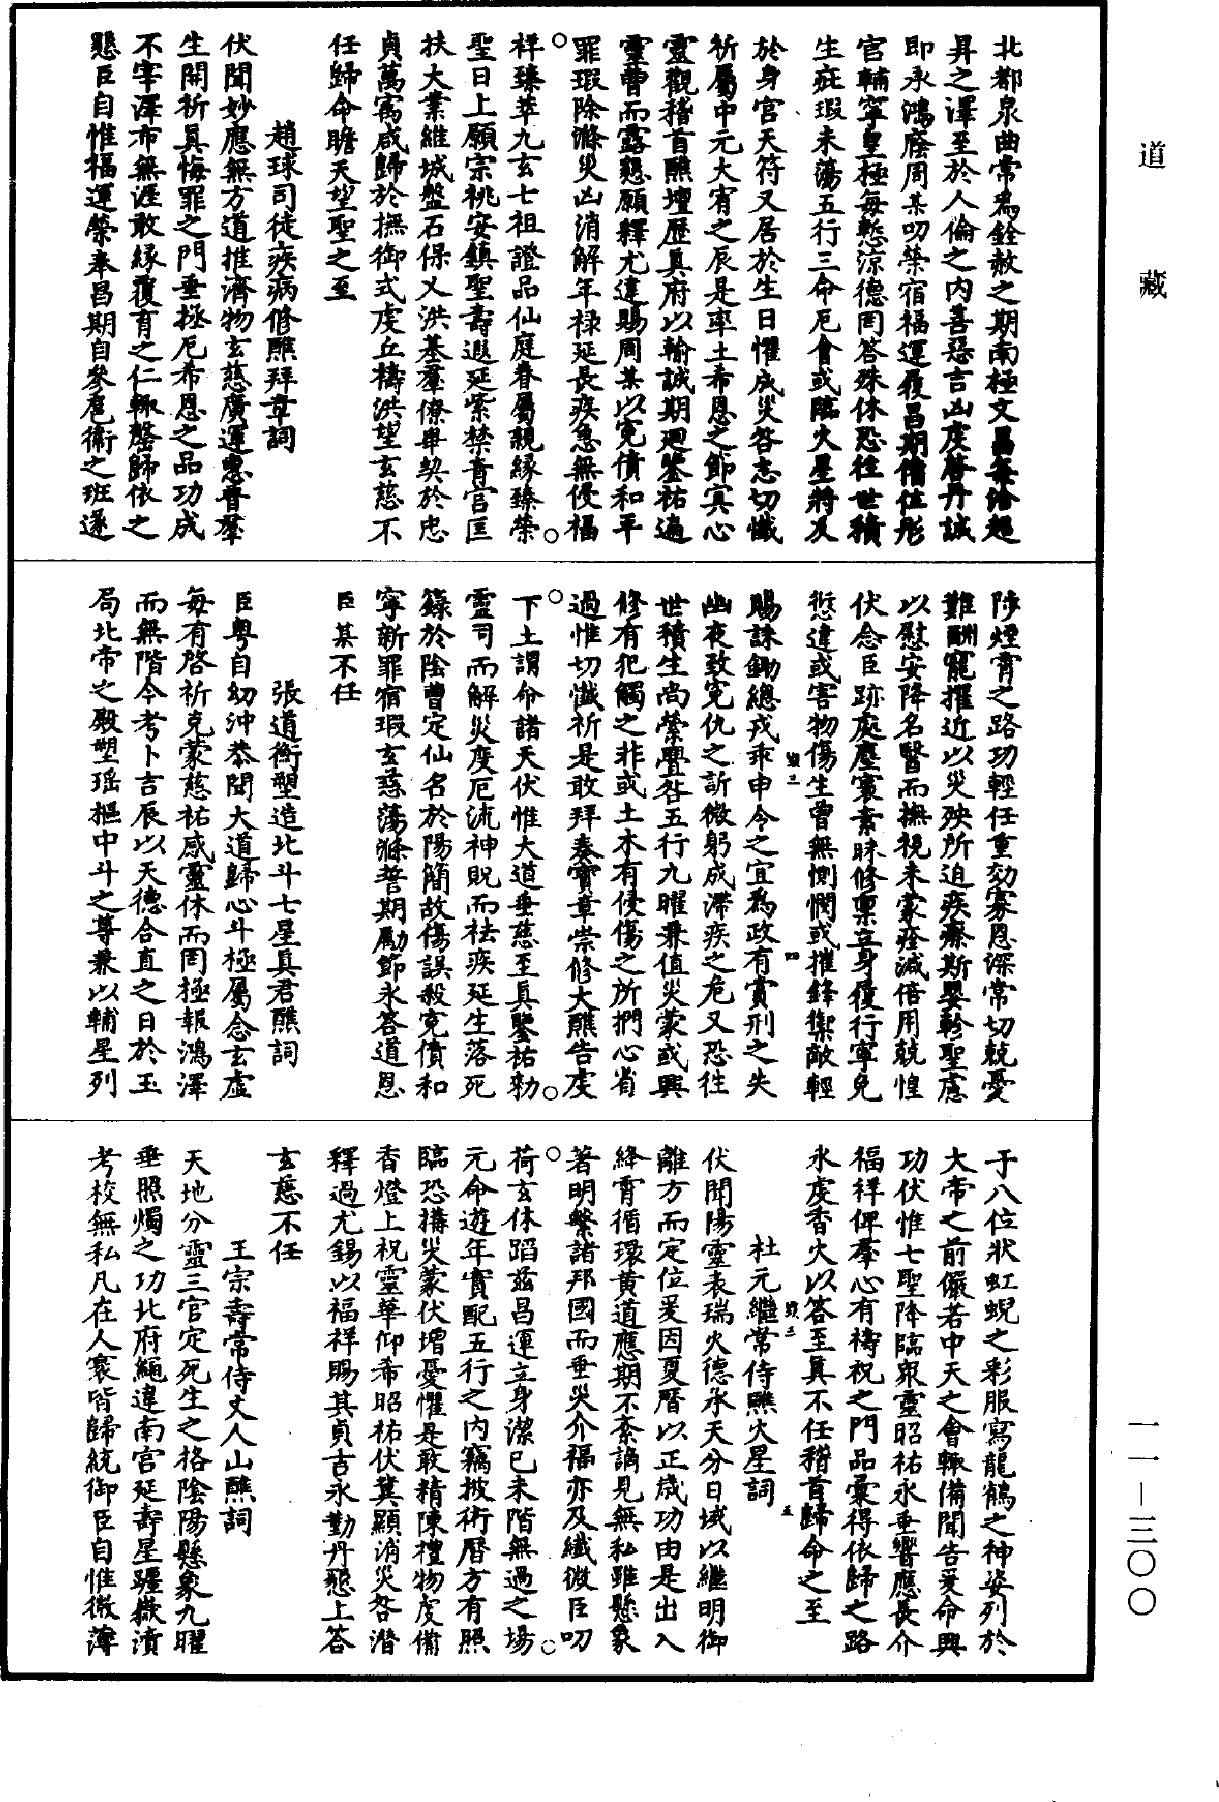 道藏
一一—三〇〇
北都泉曲常為銓赦之期南極文昌每洽超
昇之澤至於人倫之內善惡吉凶虔啓丹誠
即承鴻廕周某叨榮宿福運履昌期備位彤
宮輔寧皇極每慙涼德罔答殊休恐往世積
生疵瑕未蕩五行三命厄會或臨火星將及
於身宮天符又居於生日懼成災咎志切懺
祈屬中元大宥之辰是率土希恩之節冥心
靈觀稽首醮壇歷真府以輸誠期迴鑒祐遍
靈曹而露懇願釋尤違賜周某以冤債和平
罪瑕除滌災凶消解年祿延長疾急無侵福
祥臻萃九玄七祖證品仙庭眷屬親緣臻榮
聖日上願宗祧安鎮聖壽遐延紫禁青宮匡
扶大業維城盤石保乂洪基羣僚畢契於忠
貞萬寓咸歸於撫御式虔丘禱洪望玄慈不
任歸命瞻天望聖之至
趙球司徒疾病修醮拜章詞
伏聞妙應無方道推濟物玄慈廣運惠普羣
生開祈真悔罪之門垂拯厄希恩之品功成
不宰澤布無涯敢緣覆育之仁輒罄歸依之
懇臣自惟福運榮奉昌期自參扈衛之班遂
陟煙霄之路功輕任重効寡恩深常切兢憂
難酬寵擢近以災殃所迫疾瘵斯嬰軫聖慮
以慰安降名醫而撫視未蒙痊減倍用兢惶
伏念臣跡處塵寰素昧修稟立身履行寧免
愆違或害物傷生曾無惻憫或摧鋒禦敵輕
賜誅鋤總戎乖申令之宜為政有賞刑之失
幽夜致冤仇之訢微躬成滯疾之危又恐往
世積生尚縈舋咎五行九曜兼值災蒙或興
修有犯觸之非或土木有侵傷之所捫心省
過惟切懺祈是敢拜奏寶章崇修大醮告虔
下土謂命諸天伏惟大道垂慈至真鑒祐勑
靈司而解災度厄流神貺而祛疾延生落死
籙於陰曹定仙名於陽簡故傷誤殺冤債和
寧新罪宿瑕玄慈蕩滌誓期勵節永答道恩
臣某不任
張道衡塑造北斗七星真君醮詞
臣粵自幼沖恭聞大道歸心斗極屬念玄虛
每有啓祈克蒙慈祐感靈休而罔極報鴻澤
而無階今考卜吉辰以天德合直之日於玉
局北帝之殿塑瑶樞中斗之尊兼以輔星列
于八位狀虹蜺之彩服寫龍鶴之神姿列於
大帝之前儼若中天之會輒備聞告爰命興
功伏惟七聖降臨眾靈昭祐永垂響應長介
福祥俾羣心有禱祝之門品彙得依歸之路
永虔香火以答至真不任稽首歸命之至
杜元繼常侍醮火星詞
伏聞陽靈表瑞火德承天分日域以繼明御
離方而定位爰因夏曆以正歲功由是出入
絳霄循環黃道應期不紊謫見無私雖懸象
著明繫諸邦國而垂災介福亦及纖微臣叨
荷玄休蹈兹昌運立身潔己未階無過之場
元命遊年實配五行之內竊披術曆方有照
臨恐搆災蒙伏增憂懼是敢精陳禮物虔備
香燈上祝靈華仰希昭祐伏冀顯消災咎潛
釋過尤錫以福祥賜其貞吉永勤丹懇上答
玄慈不任
王宗壽常侍丈人山醮詞
天地分靈三官定死生之格陰陽懸象九曜
垂照燭之功北府繩違南宮延壽星躔嶽瀆
考校無私凡在人寰皆歸統御臣自惟微薄